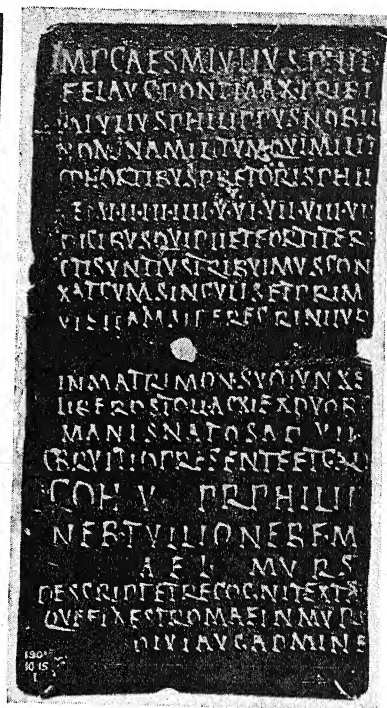 IMP CAES M IVLIVS PHILI
FEL AVG PONT MAX TRIB
M IVLIVS PHILIPPVS NOBIL
NOMINA MILITVM QVI MILIT
COHORTIBVS PRETORIS PHIL
I·II·III·IIII·V·VI·VII·VIII·VI
DICIBVS QVI PII ET FORTITER
CTI SVNT IVS TRIBVIMVS CON
XAT CVM SINGVLIS ET PRIM
PEREGRINI IVR
IN MATRIMON SVO IVNXE
LIBEROS TOLLAC XI EX DVOB
MANIS NATOS A D VII
C BRVTTIO PRESENTE ET C AL
COH V PR PHILIP
NEBTVLIO NEB F M
AEL MVRS
DESCRIPT ET RECOGNIT EX TA
QVE FIX EST ROMAE IN MVRO
DIVI AVG AD MINE
10 15
1